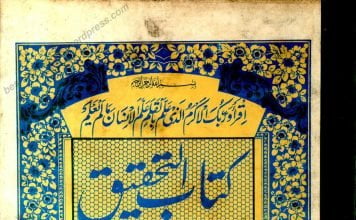 بسم الله الرحمن الرحيم
اقرأ وربك الاكرم الذى علم بالقلم علم الانسان مالم يعلم
كتاب التحقيق